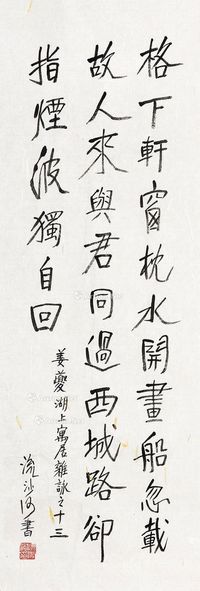 格下軒窗枕水開畫船忽載
故人來與君同過西城路卻
指煙波獨自回
姜夔湖上寓居雜詠之十三
流沙河書